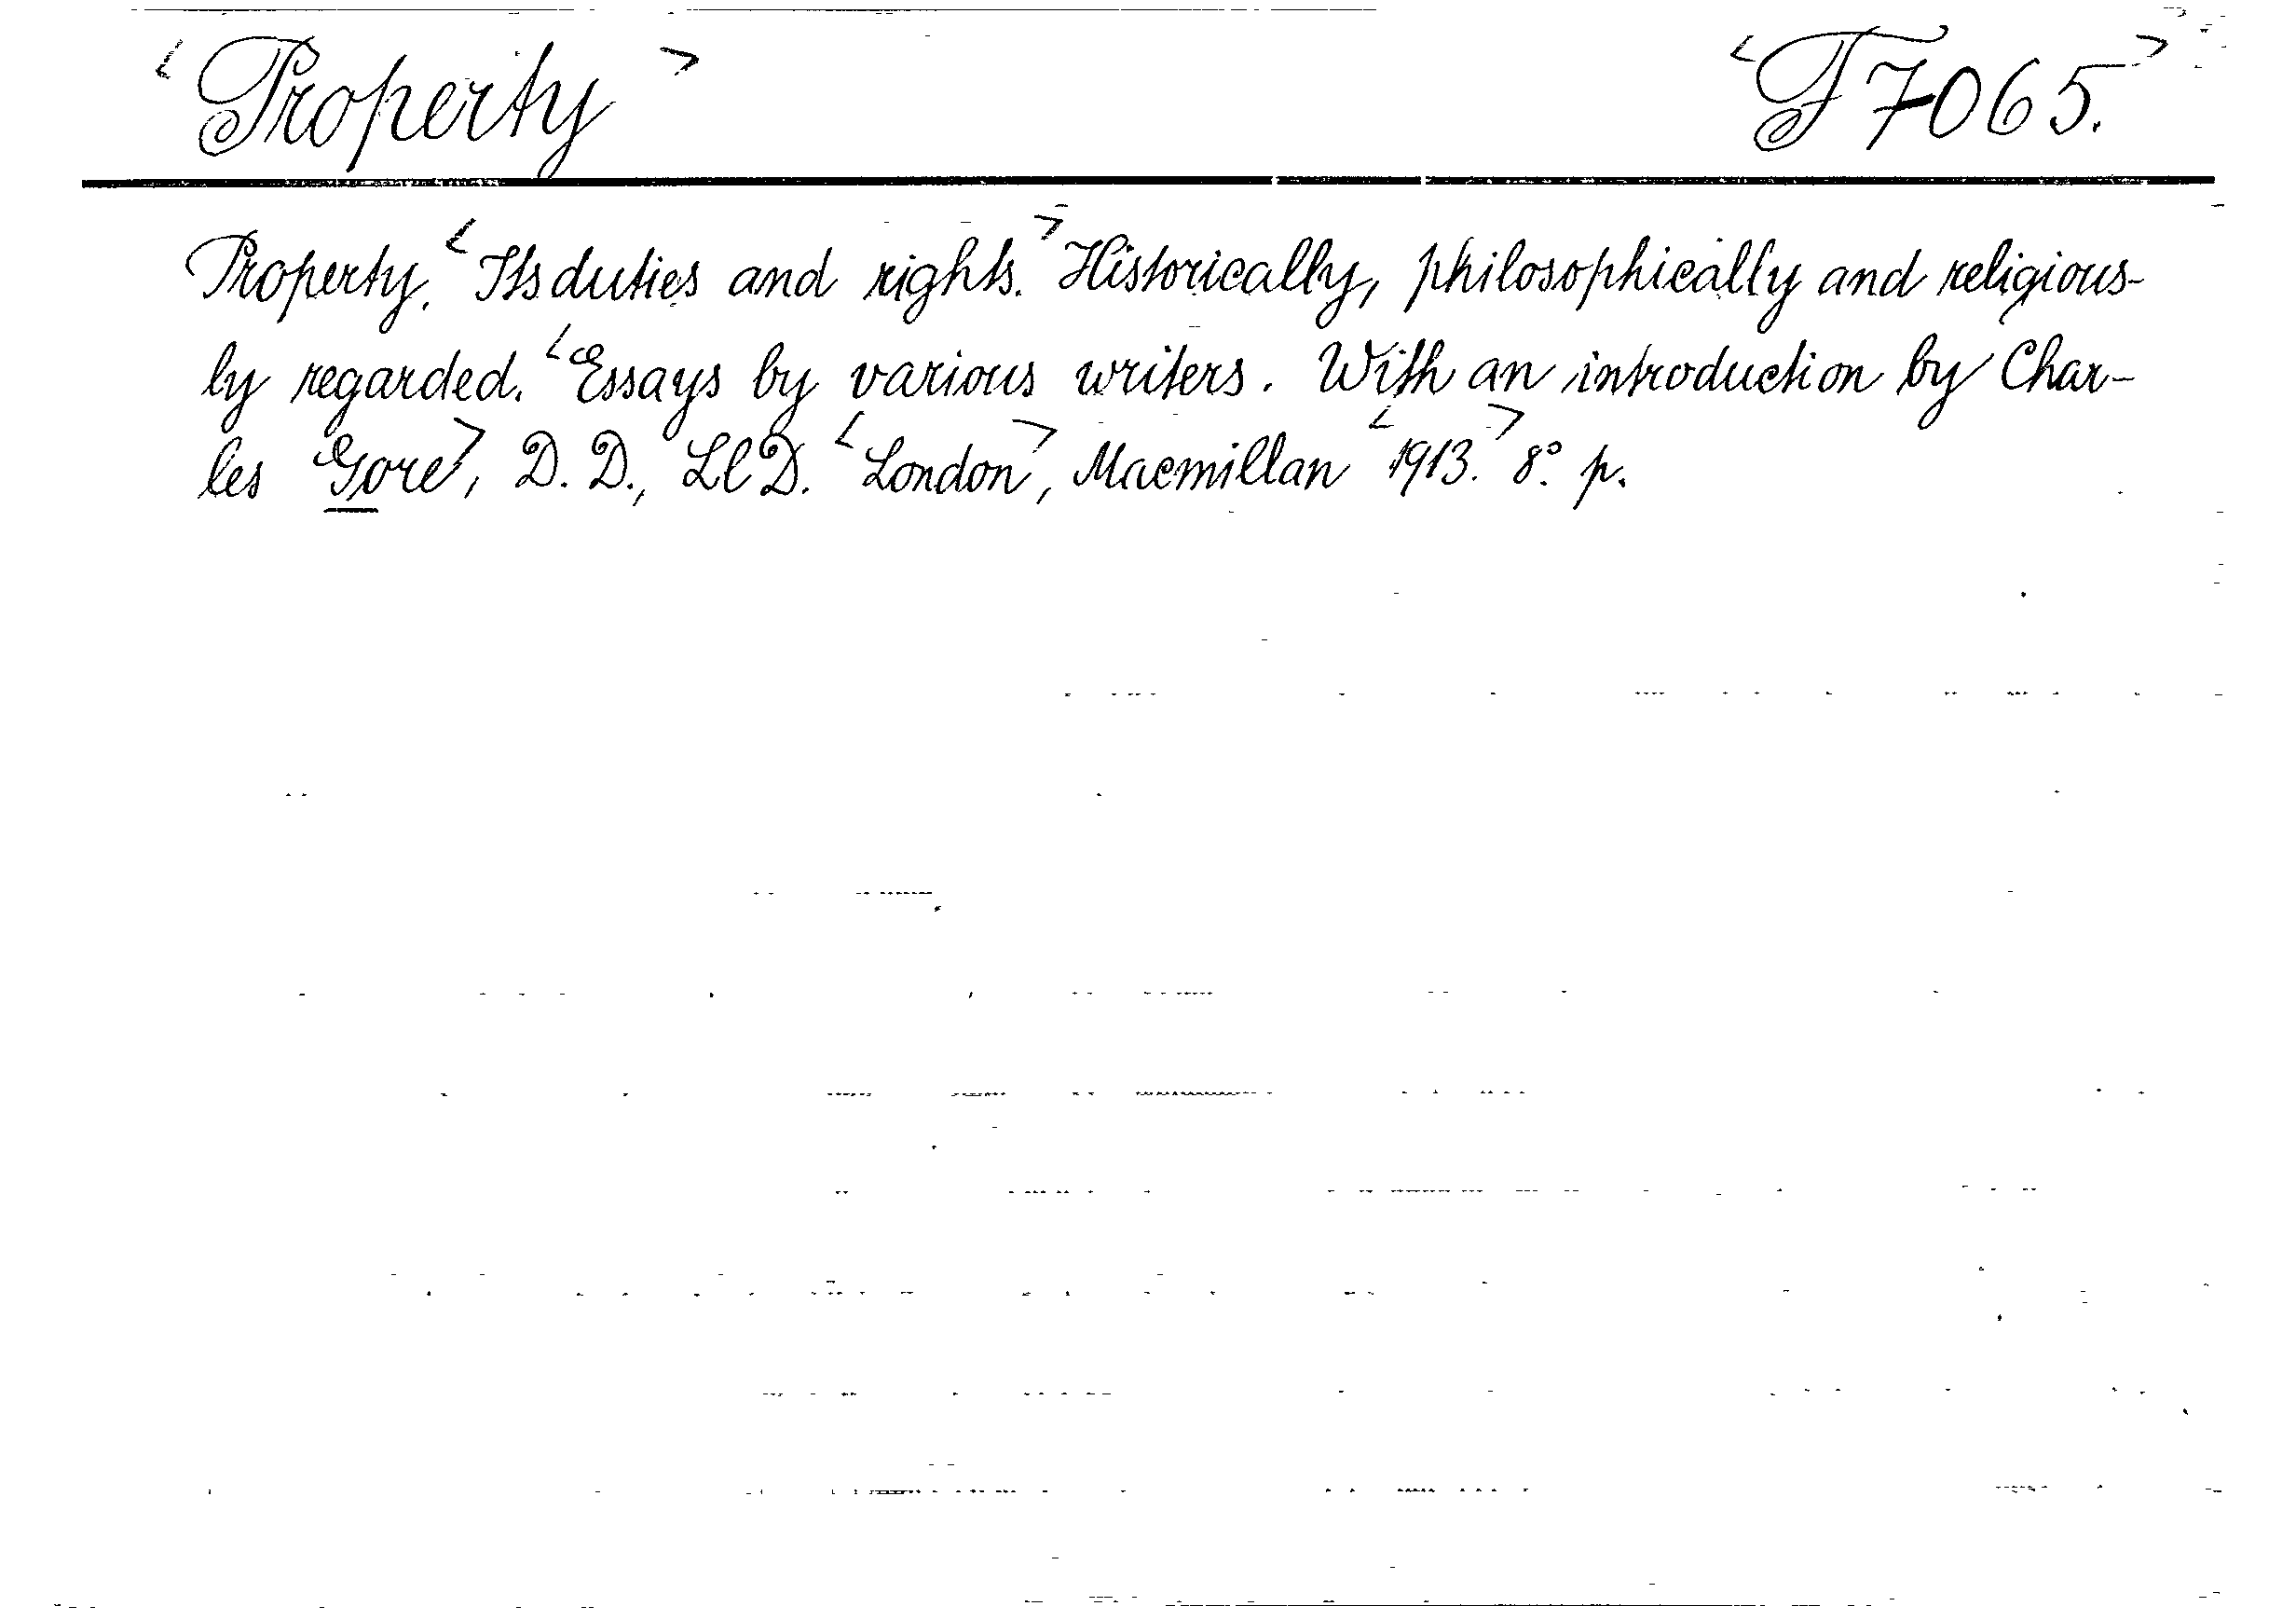 <Property> <F7065.>
Property. <Its duties and rights.> Historically, philosophically and religious-
ly regarded. <Essays by various writers. With an introduction by Char-
les Gore>, D. D., LlD. <London>, Macmillan <1913.> 8° p.